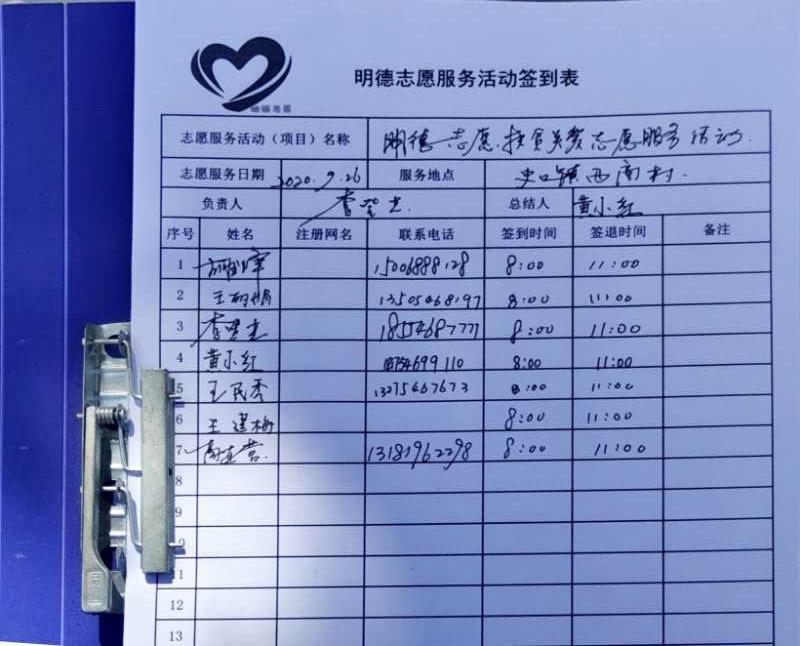 明德志愿
明德志愿服务活动签到表
志愿服务活动（项目）名称 明德志愿.扶贫关爱志愿服务活动.
志愿服务日期 2020.9.26 服务地点 史口镇西商村.
负责人 李 总结人 黄小红
序号 姓名 注册网名 联系电话 签到时间 签退时间 备注
1 15006888128 8:00 11:00
2 王 13505468197 8:00 11:00
3 李 18554687777 8:00 11:00
4 黄小红 99110 8:00 11:00
5 王民秀 13275467673 8:00 11:00
6 王建梅 8:00 11:00
7 13181962298 8:00 11:00
8
9
11
12
13